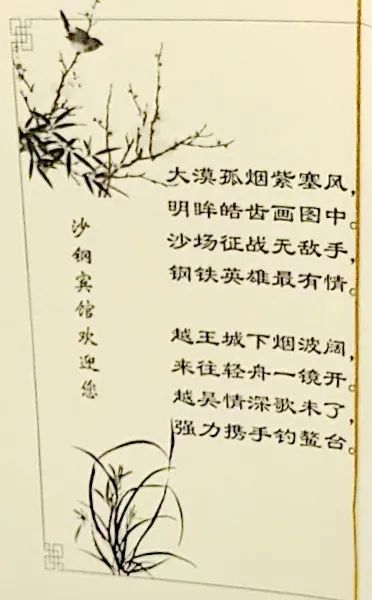 大漠孤烟紫塞风，
明眸皓齿画图中。
沙场征战无敌手，
钢铁英雄最有情。
越王城下烟波阔，
来往轻舟一镜开。
越吴情深歌未了，
强力携手钓鳌台。
沙钢宾馆欢迎您